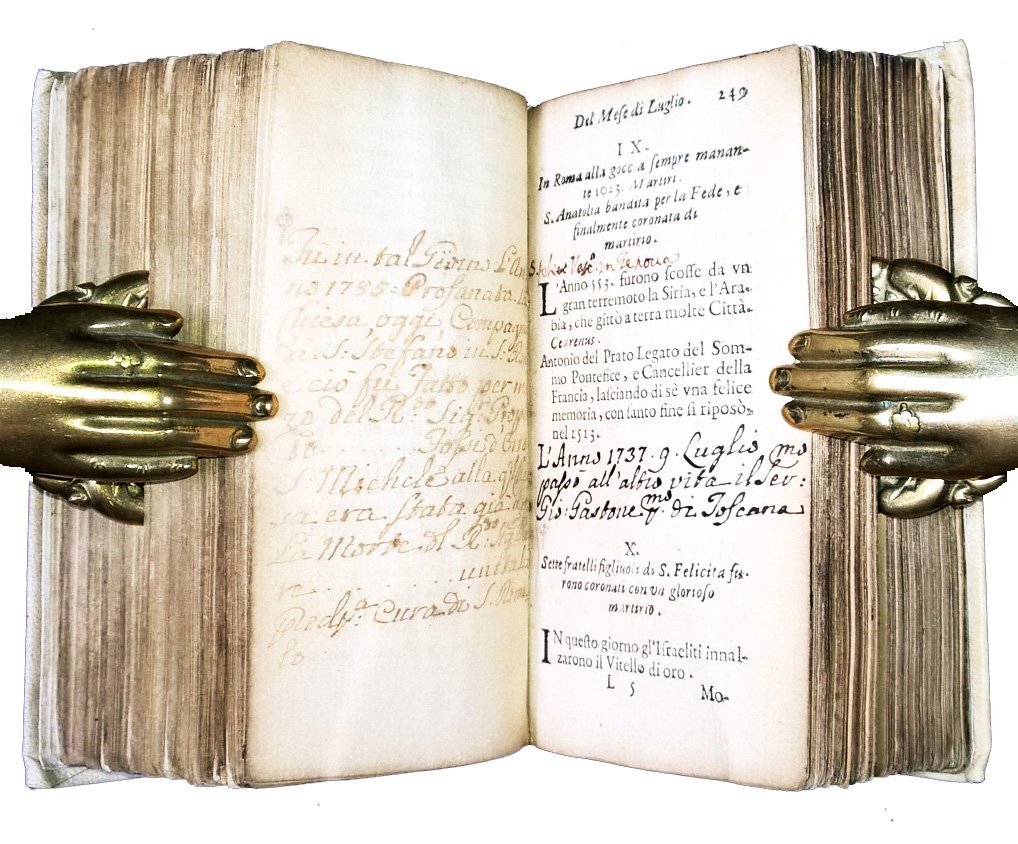 Fu in tal Giorno L'An
no 1785 = Profanata la
Chiesa, oggi Compagn
di S: Stefano in S:
e ciò fu fatto per m
zo del R.º Sig.
S. Michele alla
sa era stata già
La Morte dl R.
re
Cura di S.
lo
Del Meſe di Luglio. 249
IX.
In Roma alla goccia ſempre manan-
te 1023. Martiri.
S. Anatolia bandita per la Fede, e
finalmente coronata di
martirio.
Veſc.º in Genova
L'Anno 553. furono ſcoſſe da vn
gran terremoto la Siria, e l'Ara-
bia, che gittò a terra molte Città.
Cedrenus.
Antonio del Prato Legato del Som-
mo Pontefice, e Cancellier della
Francia, laſciando di sè vna felice
memoria, con ſanto fine ſi riposò,
nel 1513.
L'Anno 1737. 9. Luglio mo
paſsò all'altra vita il Ser:
Gio: Gastone pmo di Toſcana
X.
Sette fratelli figliuoli di S. Felicita fu-
rono coronati con vn glorioſo
martirio.
IN queſto giorno gl'Iſraeliti innal-
zarono il Vitello di oro.
L 5 Mo-